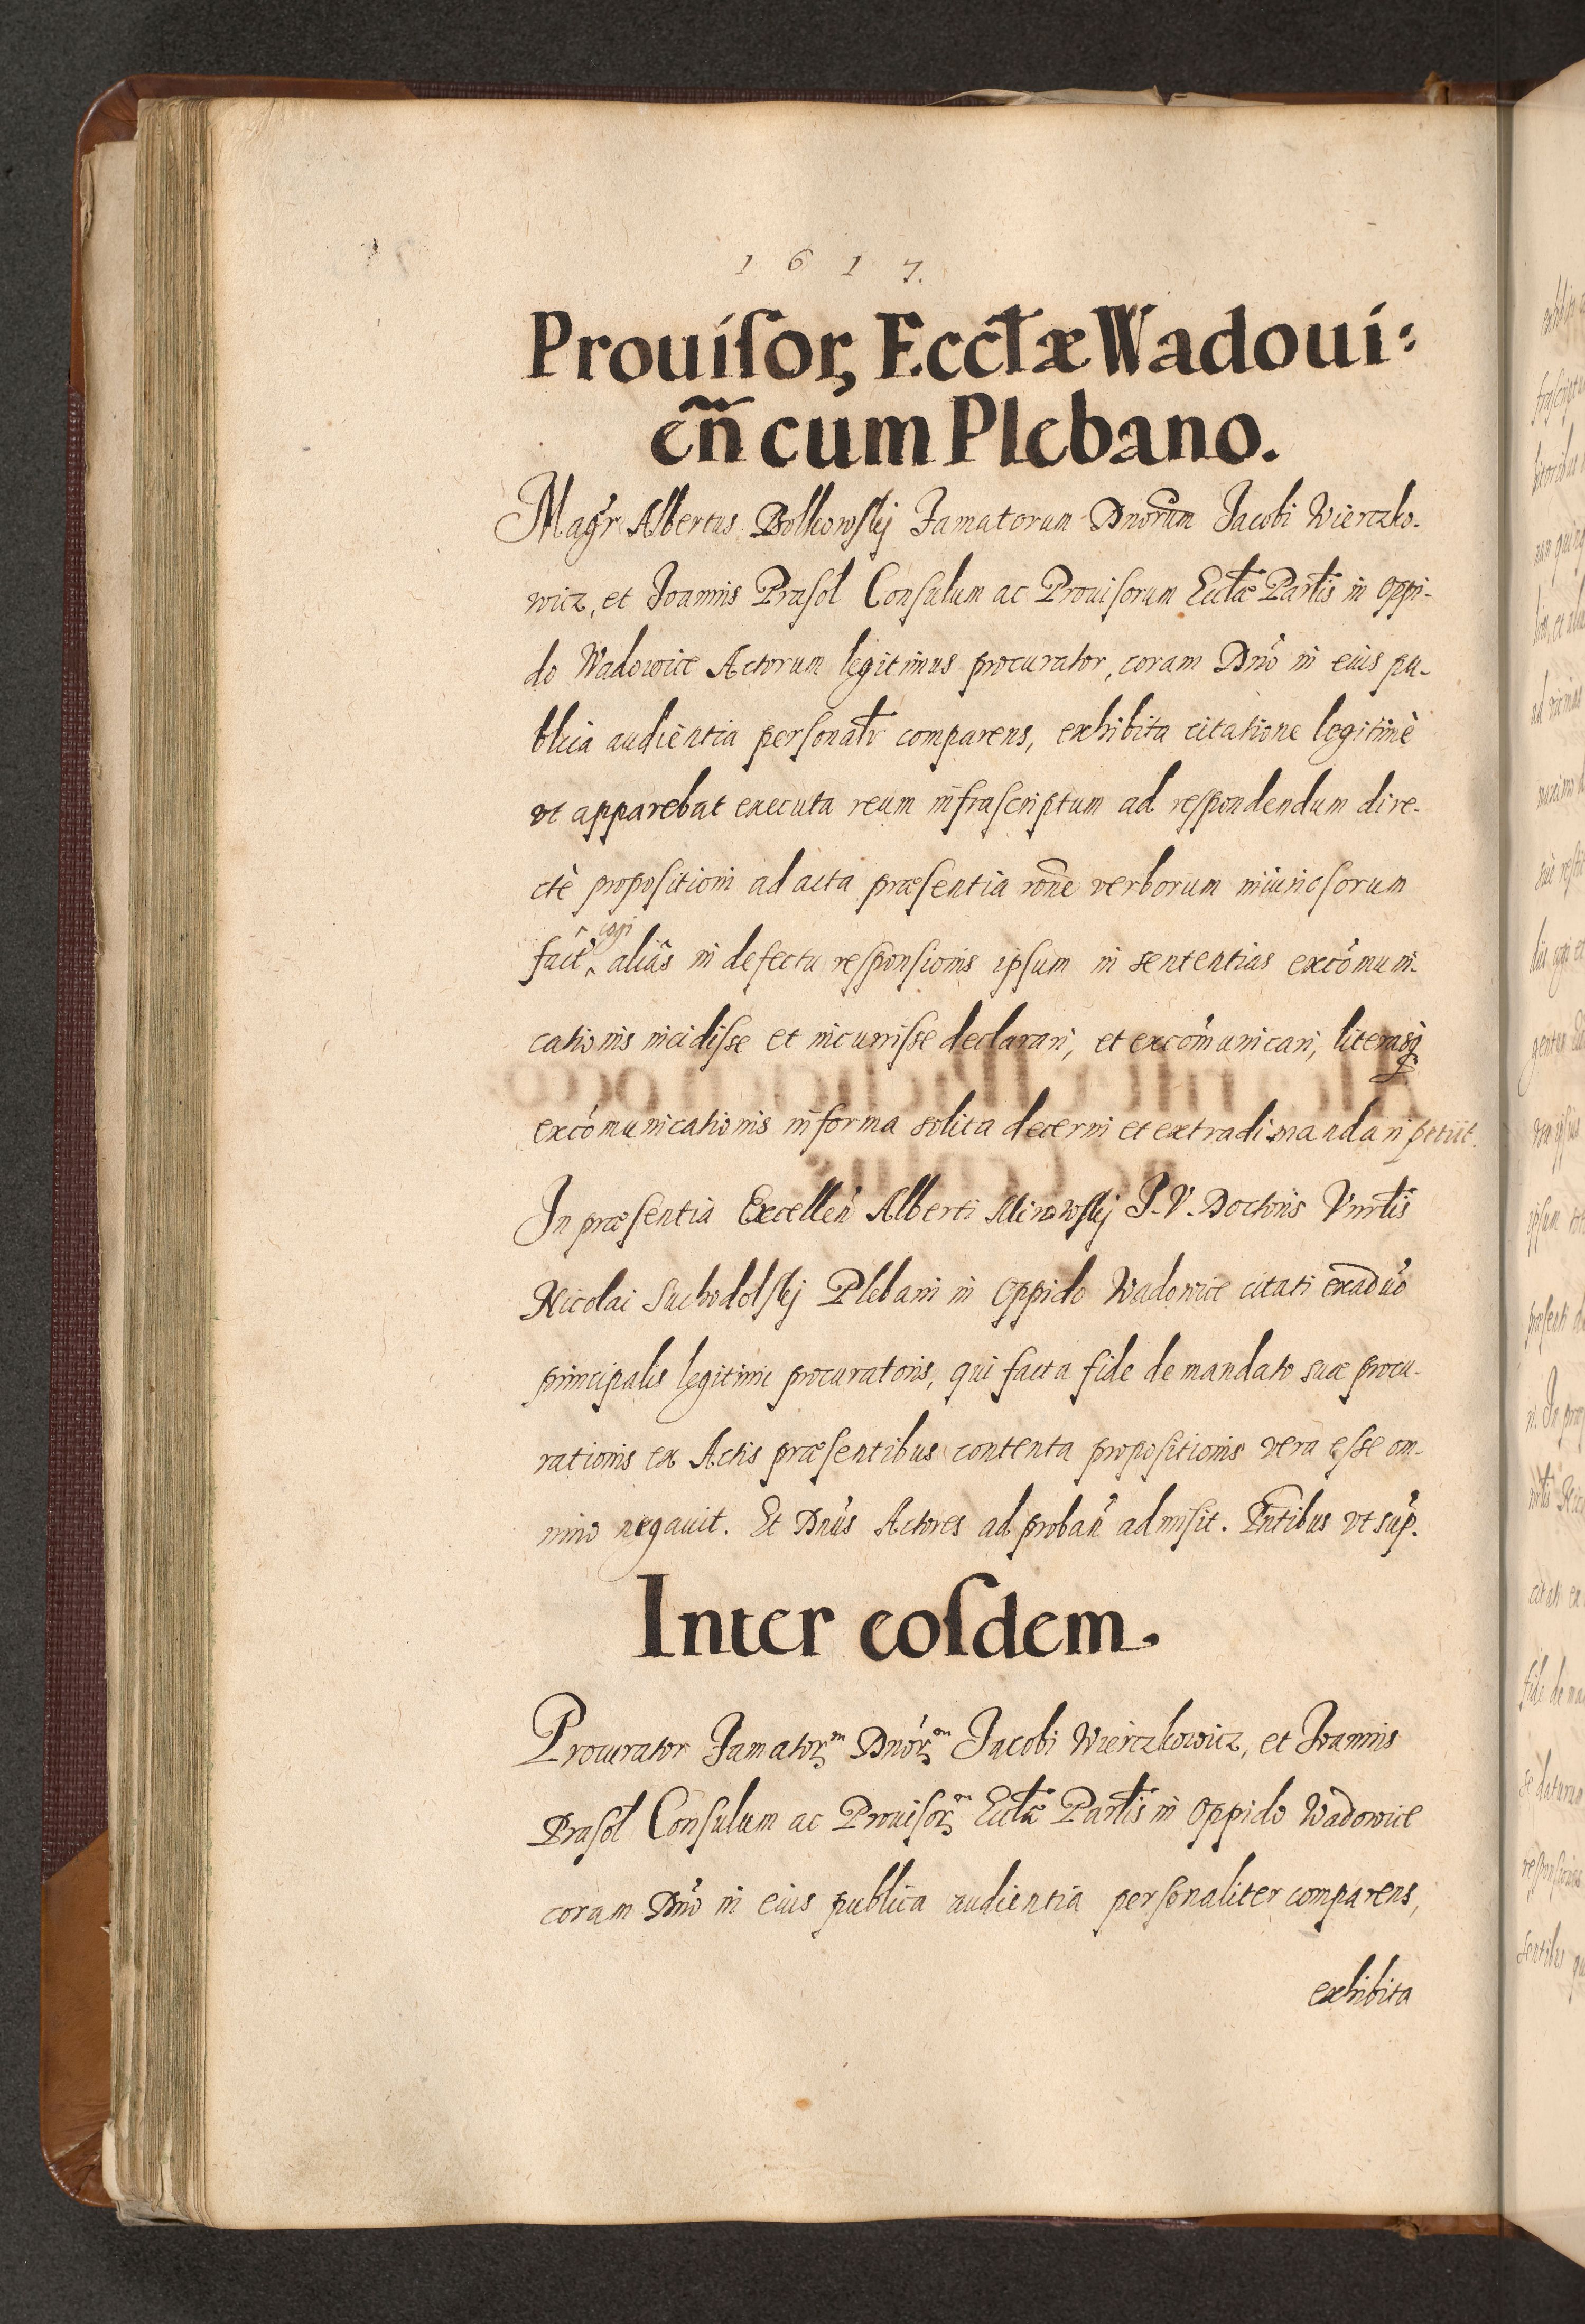 1 6 1 7.
Prouisor, Eccłæ Wadoui:
cñ cúm Plebano.
Magr̃ Albertus Bolkowskj Famatorum Dnorum Jacobi Wierczko-
wicz, et Joannis Prasoł Consulum ac Prouisorum Ecclæ Partis in Oppi-
do Wadowice Actorum legitimus procurator, coram Dnõ in eius pu-
blica audientia personaltr comparens, exhibita citatione legitimè
vt apparebat executa reum infrascriptum ad respondendum dire-
ctè propositioni ad acta præsentia rõne verborum iniuriosorum
facĩẽ cogi aliâs in defectu responsionis ipsum in sententias excõmuni-
cationis incidisse et incurrisse declarari, et excõmunicari, literasq̃
excõmunicationis in forma solita decerni et extradi mandari petiit.
In præsentia Excellen̄ Alberti Mirowskj J. V. Doctoris Vnrłis
Nicolai Suchodolskj Plebani in Oppido Wadowice citati ex aduõ
principalis legitimi procuratoris, qui facta fide de mandato suæ procu-
rationis ex Actis præsentibus contenta propositionis vera esse om-
nino negauit. Et Dnũs Actores ad proban̄ admisit. Pntibus vt sup̃.
Inter eosdem.
Procurator Famator̃m Dnõrm Jacobi Wierczkowicz, et Joannis
Prasoł Consulum ac Prouisorm Ecclæ Partis in Oppido Wadowice
coram Dnõ in eius publica audientia personaliter comparens,
exhibita